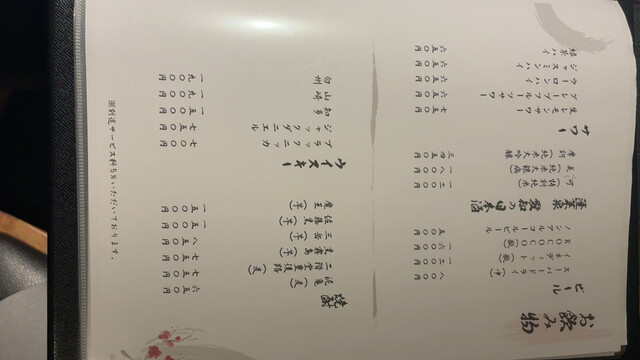 お飲み物
ビール
スーパードライ(中) 八〇〇円
(瓶) 一二〇〇円
ROCOCO(瓶) 一六〇〇円
ノンアルコールビール 五〇〇円
蓬莱泉 の日本酒
可(特別純米) 一二〇〇円
美(純米大吟醸) 一八〇〇円
摩訶(純米大吟醸)
サワー
生レモンサワー 七五〇円
グレープフルーツサワー 六五〇円
ウーロンハイ 六五〇円
ジャスミンハイ 六五〇円
緑茶ハイ 六五〇円
焼酎
(麦) 六五〇円
二階堂 (麦) 七五〇円
黒霧島(芋) 七五〇円
三岳(芋) 八五〇円
佐藤黒(芋) 一五〇〇円
魔王(芋) 一五〇〇円
ウイスキー
ブラックニッカ 七〇〇円
ジャックダニエル 七五〇円
知多 一五〇〇円
山崎 一九〇〇円
白州 一九〇〇円
※別途サービス料5%いただいております。